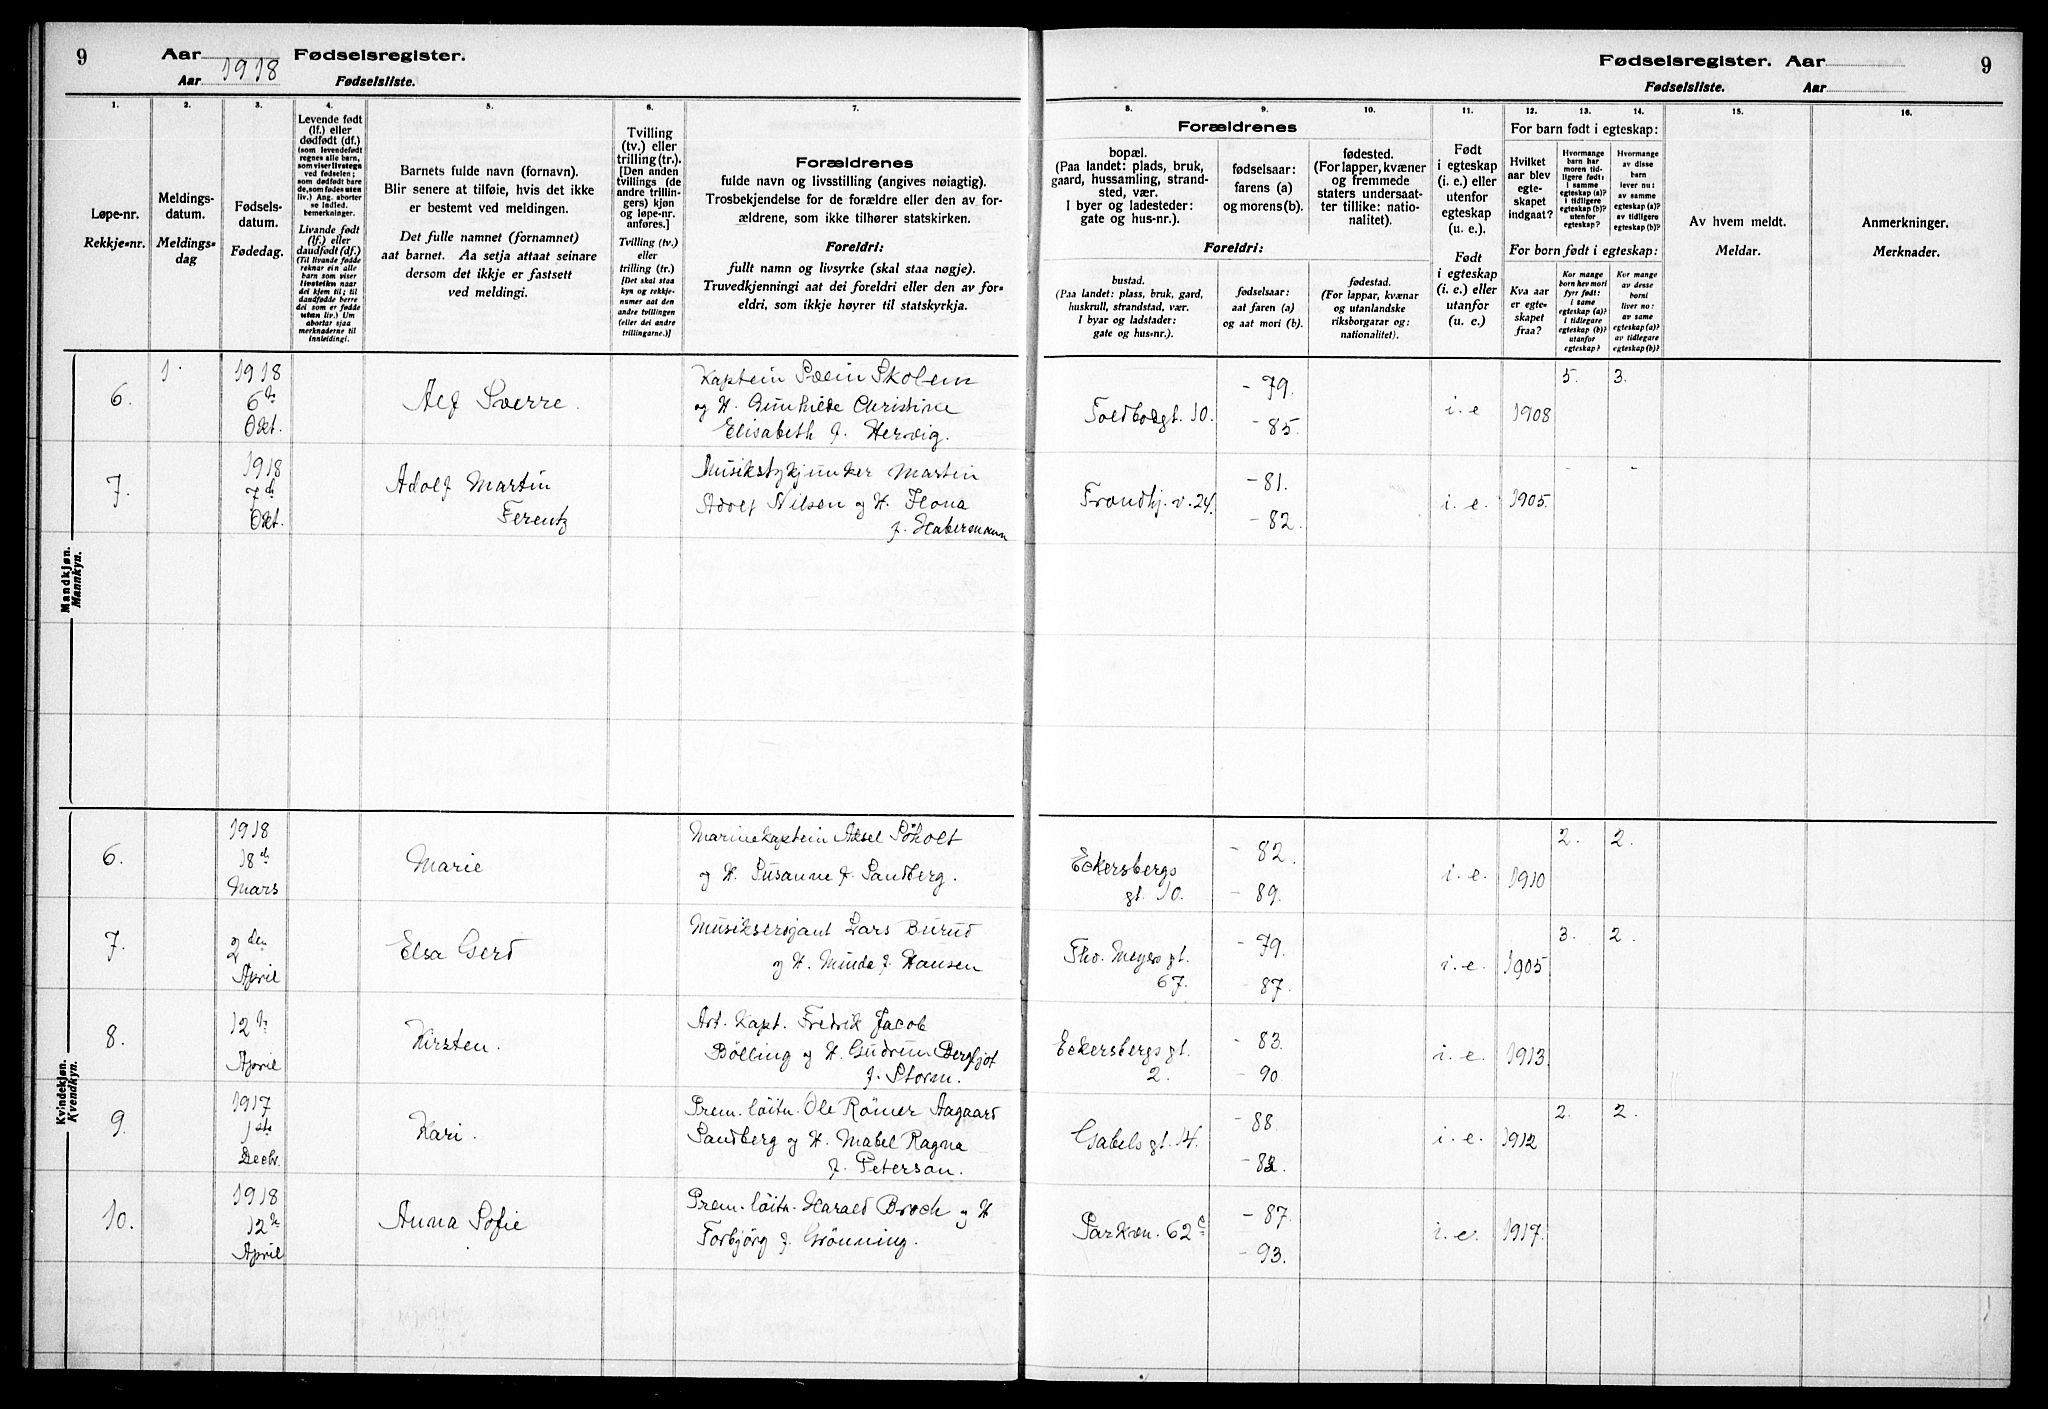 9 Aar Fødselsregister.
Aar 1918 Fødselsliste.
Fødselsregister. Aar 9
Fødselsliste. Aar
1. 2. 3. 4. 5. 6. 7. 8. 9. 10. 11. 12. 13. 14. 15. 16.
Løpe-nr.
Rekkje-nr.
Meldings-
datum.
Meldings-
dag
Fødsels-
datum.
Fødedag.
Levende født
(lf.) eller
dødfødt (df.)
(som levendefødt
regnes alle barn,
som viser livstegn
ved fødselen;
som dødfødt bare
de, som fødes uten
liv.) Ang. aborter
se indled.
bemerkninger.
Livande født
(lf.) eller
daudfødt (df.)
(Til livande fødde
reknar ein alle
barn som viser
livsteikn naar
dei kjem til; til
daudfødde berre
dei som er fødde
utan liv.) Um
abortar sjaa
merknaderne til
innleidingi.
Barnets fulde navn (fornavn).
Blir senere at tilføie, hvis det ikke
er bestemt ved meldingen.
Det fulle namnet (fornamnet)
aat barnet. Aa setja attaat seinare
dersom det ikkje er fastsett
ved meldingi.
Tvilling
(tv.) eller
trilling (tr.).
[Den anden
tvillings (de
andre trillin-
gers) kjøn
og løpe-nr.
anføres.]
Tvilling (tv.)
eller
trilling (tr.)
[Det skal staa
kyn og rekkje-
numer aat den
andre tvillingen
(eller dei andre
trillingarne.)]
Forældrenes
fulde navn og livsstilling (angives nøiagtig).
Trosbekjendelse for de forældre eller den av for-
ældrene, som ikke tilhører statskirken.
Foreldri:
fullt namn og livsyrke (skal staa nøgje).
Truvedkjenningi aat dei foreldri eller den av for-
eldri, som ikkje høyrer til statskyrkja.
Forældrenes
bopæl.
(Paa landet: plads, bruk,
gaard, hussamling, strand-
sted, vær.
I byer og ladesteder:
gate og hus-nr.).
fødselsaar:
farens (a)
og morens (b).
fødested.
(For lapper, kvæner
og fremmede
staters undersaat-
ter tillike: natio-
nalitet).
Foreldri:
bustad.
(Paa landet: plass, bruk, gard,
huskrull, strandstad, vær.
I byar og ladstader:
gate og hus-nr.).
fødselsaar:
aat faren (a)
og aat mori (b).
fødestad.
(For lappar, kvænar
og utanlandske
riksborgarar og:
nationalitet).
Født
i egteskap
(i. e.) eller
utenfor
egteskap
(u. e.).
Født
i egteskap
(i. e.) eller
utanfor
(u. e.)
For barn født i egteskap:
Hvilket
aar blev
egte-
skapet
indgaat?
Hvormange
barn har
moren tid-
ligere født:
i samme
egteskap (a)?
i tidligere
egteskap (b)?
utenfor
egteskap?
Hvormange
av disse
barn
lever nu:
av samme
egteskap (a)?
av tidligere
egteskap (b)?
For born født i egteskap:
Kva aar
er egte-
skapet
fraa?
Kor mange
born hev mori
fyrr født:
i same
egteskap (a)?
i tidlegare
egteskap (b)?
utanfor
egteskap?
Kor mange
av desse
borni
liver no:
av same
egteskap (a)?
av tidlegare
egteskap (b)?
Av hvem meldt.
Meldar.
Anmerkninger.
Merknader.
Mandkjøn.
Mannkyn.
6. 1. 1918 6te Okt. Alf Sverre. Kaptein Svein Skolem
og H. Gunhilde Christine
Elisabeth f. Hervig. - 79. - 85. i. e 1908 5. 3.
7. 1918 7de Okt. Adolf Martin
Ferentz Martin
Adolf Nilsen og H. Ilona
f. Habersmann Trondhj. v. 24. - 81. - 82. i. e. 1905.
Kvindekjøn.
Kvendkyn.
6. 1918 18de Mars Marie Marinekaptein Aksel Søholt
og H. Susanne f. Sandberg. Eckersbergs
gt. 10. - 82. - 89. i. e. 1910 2. 2.
7. 2den April Elsa Gerd Musikserjant Lars Burud
og H. Minda f. Hansen Tho. Meyers gt.
67. - 79. - 87. i. e. 1905 3. 2.
8. 12te April Kirsten. Art. Kapt. Fredrik Jacob
Bölling og H. Gudrun Bergljot
f. Storm. Eckersbergs gt.
2. - 83. - 90. i. e. 1913.
9. 1917 1ste Decbr. Kari. Prem. löitn. Ole Römer Aagaard
Sandberg og H. Mabel Ragna
f. Peterson. Gabels gt. 14. - 88. i. e. 1912 2. 2.
10. 1918 12te April Anna Sofie Prem. löitn. Harald Broch og H
Torbjörg f. Grönning. Parkvn. 62 c - 87. - 93. i. e. 1917.